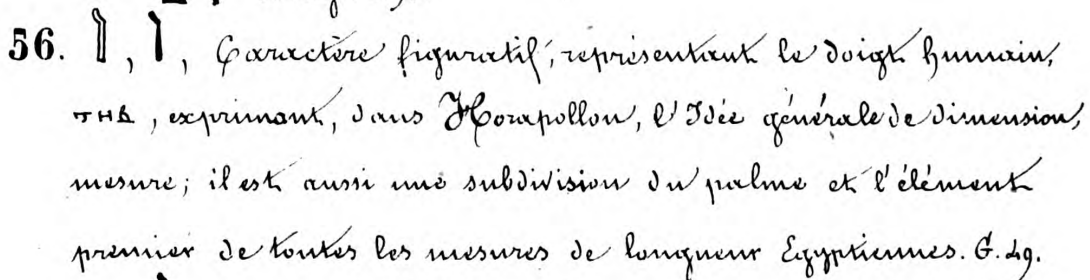 56. 𓂭, 𓂭, Caractère figuratif, représentant le doigt humain,
ⲦⲎⲂ, exprimant, dans Horapollon, l'Idée générale de dimension,
mesure; il est aussi une subdivision du palme et l'élément
premier de toutes les mesures de longueur Egyptiennes. G. 49.